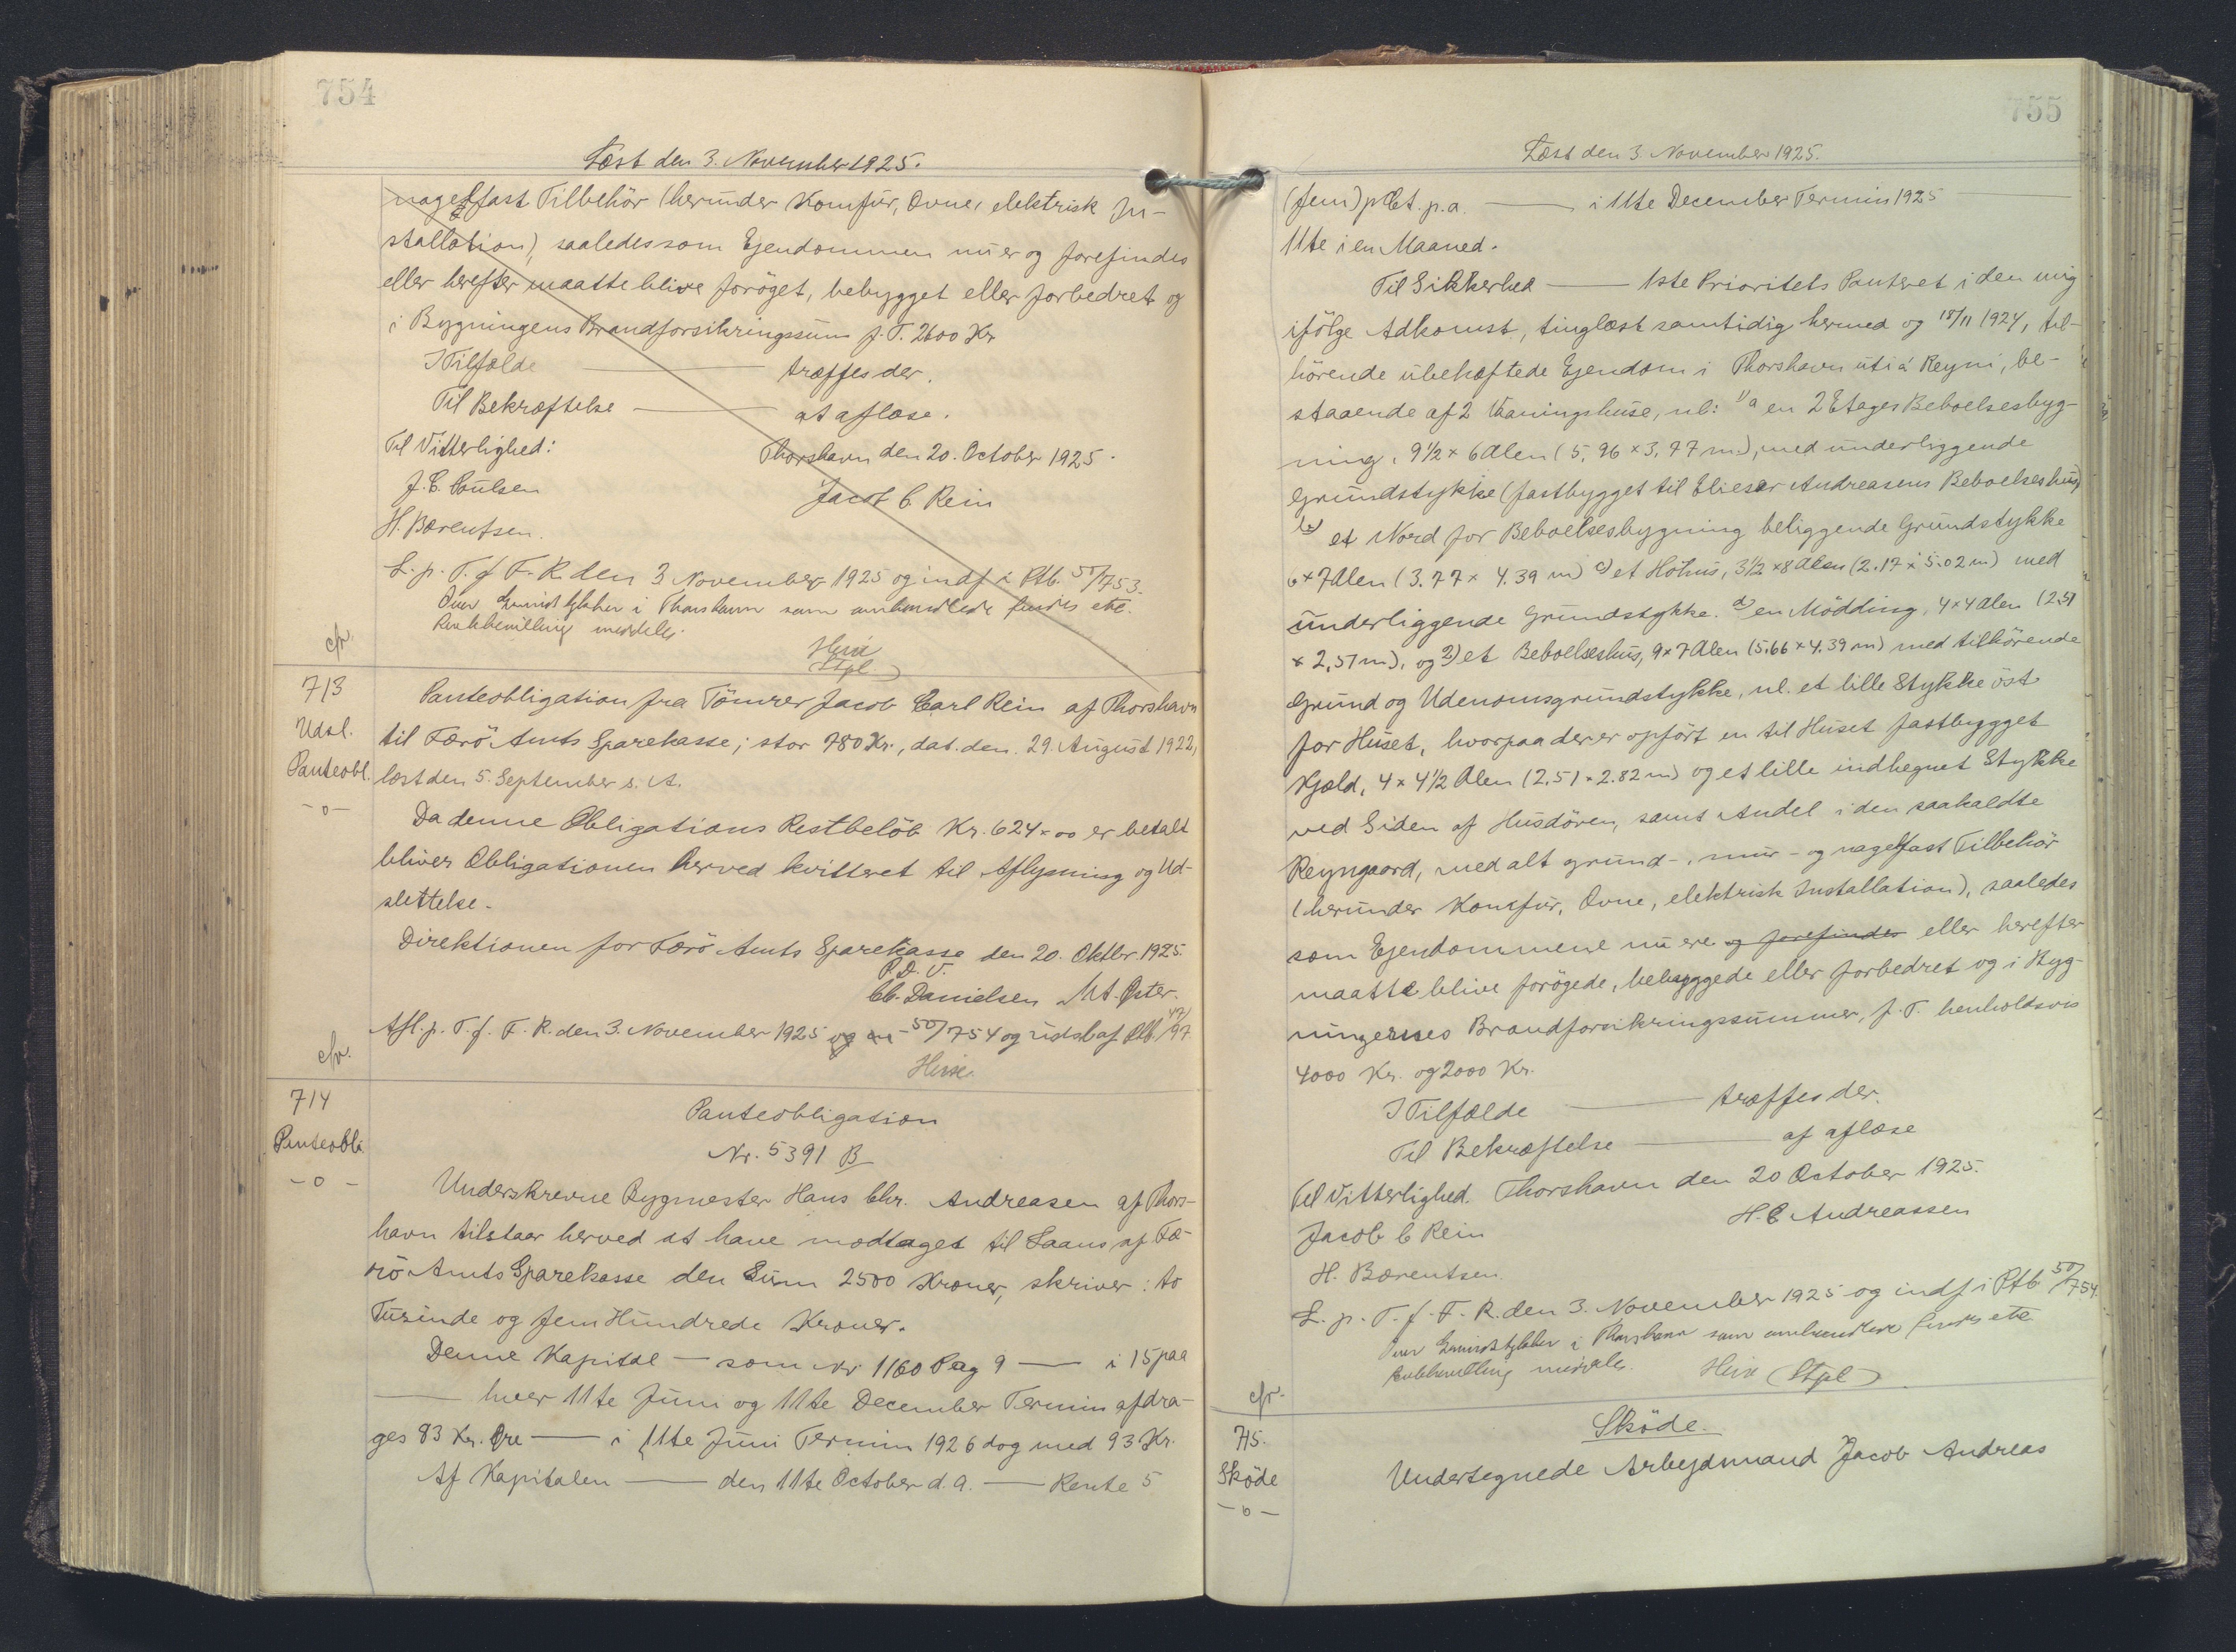 754
Læst den 3. November 1925.
nagelfast Tilbehör (herunder Komfur, Ovne, elektrisk In-
stallation), saaledes som Ejendommen nu er og forefindes
eller herefter maatte blive foröget, bebygget eller forbedret og
i Bygningens Brandforsikringssum p. T. 2600 Kr
I Tilfælde — træffes der.
Til Bekræftelse — at aflæse.
Til Vitterlighed: Thorshavn den 20. October 1925.
J. C. Poulsen Jacob C. Rein
H. Bærentsen.
L. p. T. f. F. R. den 3 November 1925 og indf i Ptb. 50/753.
Over Grundstykker i Thorshavn som omhandlede findes etc.
meddeles.
cfr.
Stpl
713
Udsl.
Panteobl.
-o-
Panteobligation fra Tömrer Jacob Carl Rein af Thorshavn
til Færö Amts Sparekasse; stor 780 Kr., dat. den 29. August 1922,
læst den 5. September s. A.
Da denne Obligations Restbelöb Kr. 624 x 00 er betalt
bliver Obligationen herved kvitteret til Aflysning og Ud-
slettelse.
Direktionen for Færö Amts Sparekasse den 20. Oktbr. 1925.
P. D. V.
Chr. Danielsen M. A. Öster.
Afl. p. T. f. F. R. den 3. November 1925 50/754 og udsl. af Ptb. 47/97.
cfr.
714
Panteobl.
-o-
Panteobligation
Nr. 5391 B
Underskrevne Bygmester Hans Chr. Andreasen af Thors-
havn tilstaar herved at have modtaget til Laans af Fæ-
rö Amts Sparekasse den Sum 2500 Kroner, skriver: to
Tusinde og fem Hundrede Kroner.
Denne Kapital — som Nr 1160 Pag 9 — i 15 paa
— hver 11te Juni og 11te December Termin afdra-
ges 83 Kr. Öre — i 11te Juni Termin 1926 dog med 93 Kr.
Af Kapitalen — den 11te October d. A. — Rente 5
755
Læst den 3. November 1925.
(fem) pCt. p. a. — i 11te December Termin 1925
11te i en Maaned.
Til Sikkerhed — 1ste Prioritets Panteret i den mig
ifölge Adkomst, tinglæst samtidig hermed og 18/11 1924, til-
hörende ubehæftede Ejendom i Thorshavn uti á Reyni, be-
staaende af 2 Vaaningshuse, nl: 1)a en 2 Etages Beboelsesbyg-
ning, 9½ x 6 Alen (5,96 x 3,77 m.), med underliggende
Grundstykke (fastbygget til Elieser Andreasens Beboelseshus)
b) et Nord for Beboelsesbygning beliggende Grundstykke
6 x 7 Alen (3.77 x 4.39 m) c) et Höhus, 3½ x 8 Alen (2.17 x 5.02 m) med
underliggende Grundstykke. d) en Mödding, 4 x 4 Alen (2,51
x 2,51 m), og 2) et Beboelseshus, 9 x 7 Alen (5.66 x 4.39 m) med tilhörende
Grund og Udenomsgrundstykke, nl. et lille Stykke öst
for Huset, hvorpaa der er opfört en til Huset fastbygget
Kjald, 4 x 4½ Alen (2.51 x 2.82 m) og et lille indhegnet Stykke
ved Siden af Husdören, samt Andel i den saakaldte
Reyngaard, med alt grund-, mur- og nagelfast Tilbehör
(herunder Komfur, Ovne, elektrisk Installation), saaledes
som Ejendommene nu ere og forefindes eller herefter
maatte blive forögede, bebyggede eller forbedret og i Byg-
ningernes Brandforsikringssummer, p. T. henholdsvis
4000 Kr. og 2000 Kr.
I Tilfælde — træffes der.
Til Bekræftelse — af aflæse
Til Vitterlighed. Thorshavn den 20 October 1925.
Jacob C Rein H. C Andreassen
H. Bærentsen.
L. p. T. f. F. R. den 3. November 1925 og indf i Ptb 50/754.
Over Grundstykker i Thorshavn som omhandlede findes etc
meddeles. (Stpl)
cfr.
715.
Sköde
-o-
Sköde.
Undertegnede Arbejdsmand Jacob Andreas